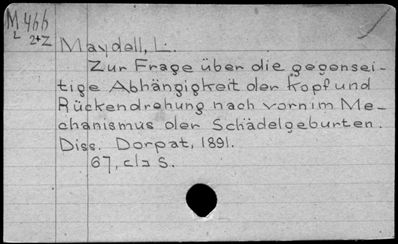 M466
L 2+Z
Maydell, L.
Zur Frage über die gegensei-
tige Abhängigkeit der Kopf und
Rückendrehung nach vorn im Me-
chanismus der Schädelgeburten.
Diss. Dorpat, 1891.
67, cl> S.